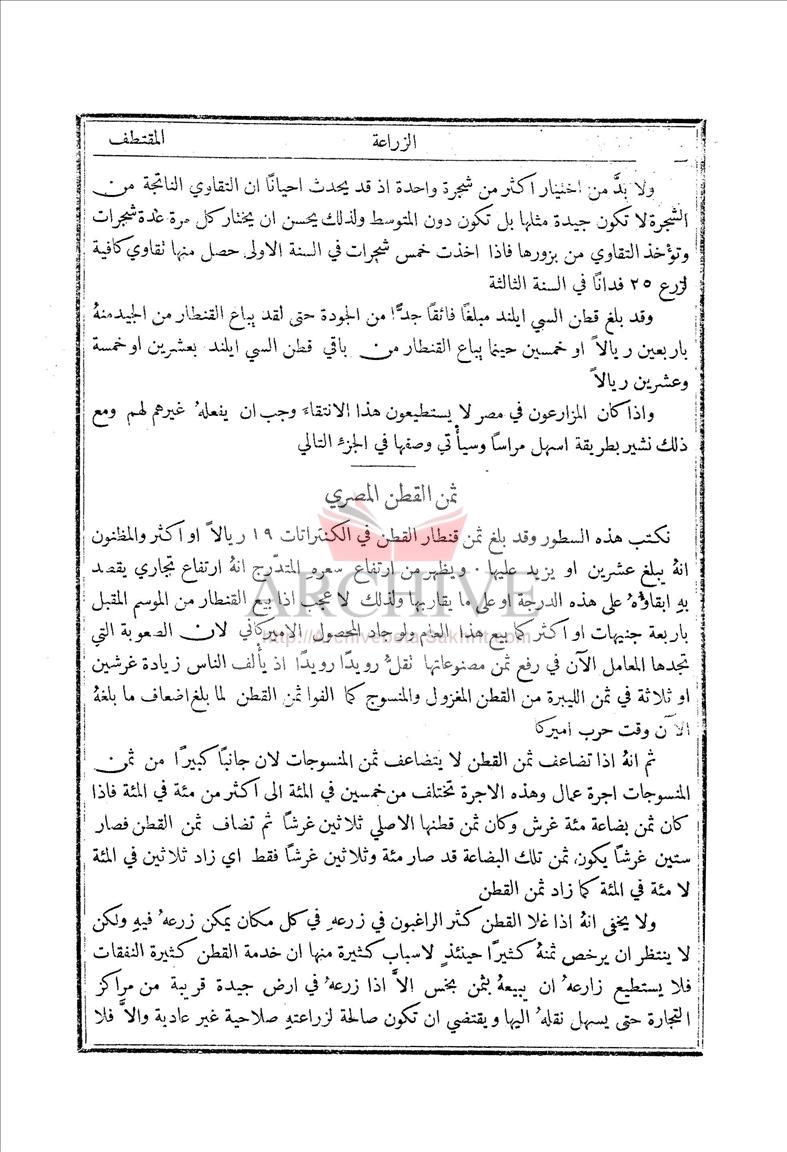 المقتطف
الزراعة
ولا بدَّ من اختيار اكثر من شجرة واحدة اذ قد يحدث احيانًا ان التقاوي الناتجة من
الشجرة لا تكون جيدة مثلها بل تكون دون المتوسط ولذلك يحسن ان يختار كل مرة عدة شجرات
وتؤخذ التقاوي من بزورها فاذا اخذت خمس شجرات في السنة الاولى حصل منها تقاوي كافية
لزرع ٢٥ فدانًا في السنة الثالثة
وقد بلغ قطن السي ايلند مبلغًا فائقًا جدًّا من الجودة حتى لقد يباع القنطار من الجيد منهُ
باربعين ريالاً او خمسين حينما يباع القنطار من باقي قطن السي ايلند بعشرين او خمسة
وعشرين ريالاً
واذا كان المزارعون في مصر لا يستطيعون هذا الانتقاء وجب ان يفعلهُ غيرهم لهم ومع
ذلك نشير بطريقة اسهل مراسًا وسيأتي وصفها في الجزء التالي
ثمن القطن المصري
نكتب هذه السطور وقد بلغ ثمن قنطار القطن في الكنتراتات ١٩ ريالاً او اكثر والمظنون
انهُ يبلغ عشرين او يزيد عليها. ويظهر من ارتفاع سعرهِ المتدرّج انهُ ارتفاع تجاري يقصد
بهِ ابقاؤهُ على هذه الدرجة او على ما يقاربها ولذلك لا عجب اذا بيع القنطار من الموسم المقبل
باربعة جنيهات او اكثر كما بيع هذا العام ولو جاد المحصول الاميركاني لان الصعوبة التي
تجدها المعامل الآن في رفع ثمن مصنوعاتها نقلّ رويدًا رويدًا اذ يألف الناس زيادة غرشين
او ثلاثة في ثمن الليبرة من القطن المغزول والمنسوج كما الفوا ثمن القطن لما بلغ اضعاف ما بلغهُ
الآن وقت حرب اميركا
ثم انهُ اذا تضاعف ثمن القطن لا يتضاعف ثمن المنسوجات لان جانبًا كبيرًا من ثمن
المنسوجات اجرة عمال وهذه الاجرة تختلف من خمسين في المئة الى اكثر من مئة في المئة فاذا
كان ثمن بضاعة مئة غرش وكان ثمن قطنها الاصلي ثلاثين غرشًا ثم تضاف ثمن القطن فصار
ستين غرشًا يكون ثمن تلك البضاعة قد صار مئة وثلاثين غرشًا فقط اي زاد ثلاثين في المئة
لا مئة في المئة كما زاد ثمن القطن
ولا يخفى انهُ اذا غلا القطن كثر الراغبون في زرعهِ في كل مكان يمكن زرعهُ فيهِ ولكن
لا ينتظر ان يرخص ثمنهُ كثيرًا حينئذٍ لاسباب كثيرة منها ان خدمة القطن كثيرة النفقات
فلا يستطيع زارعهُ ان يبيعهُ بثمن بخس الاَّ اذا زرعهُ في ارض جيدة قريبة من مراكز
التجارة حتى يسهل نقلهُ اليها ويقتضي ان تكون صالحة لزراعتهِ صلاحية غير عادية والاَّ فلا
ARCHIVE